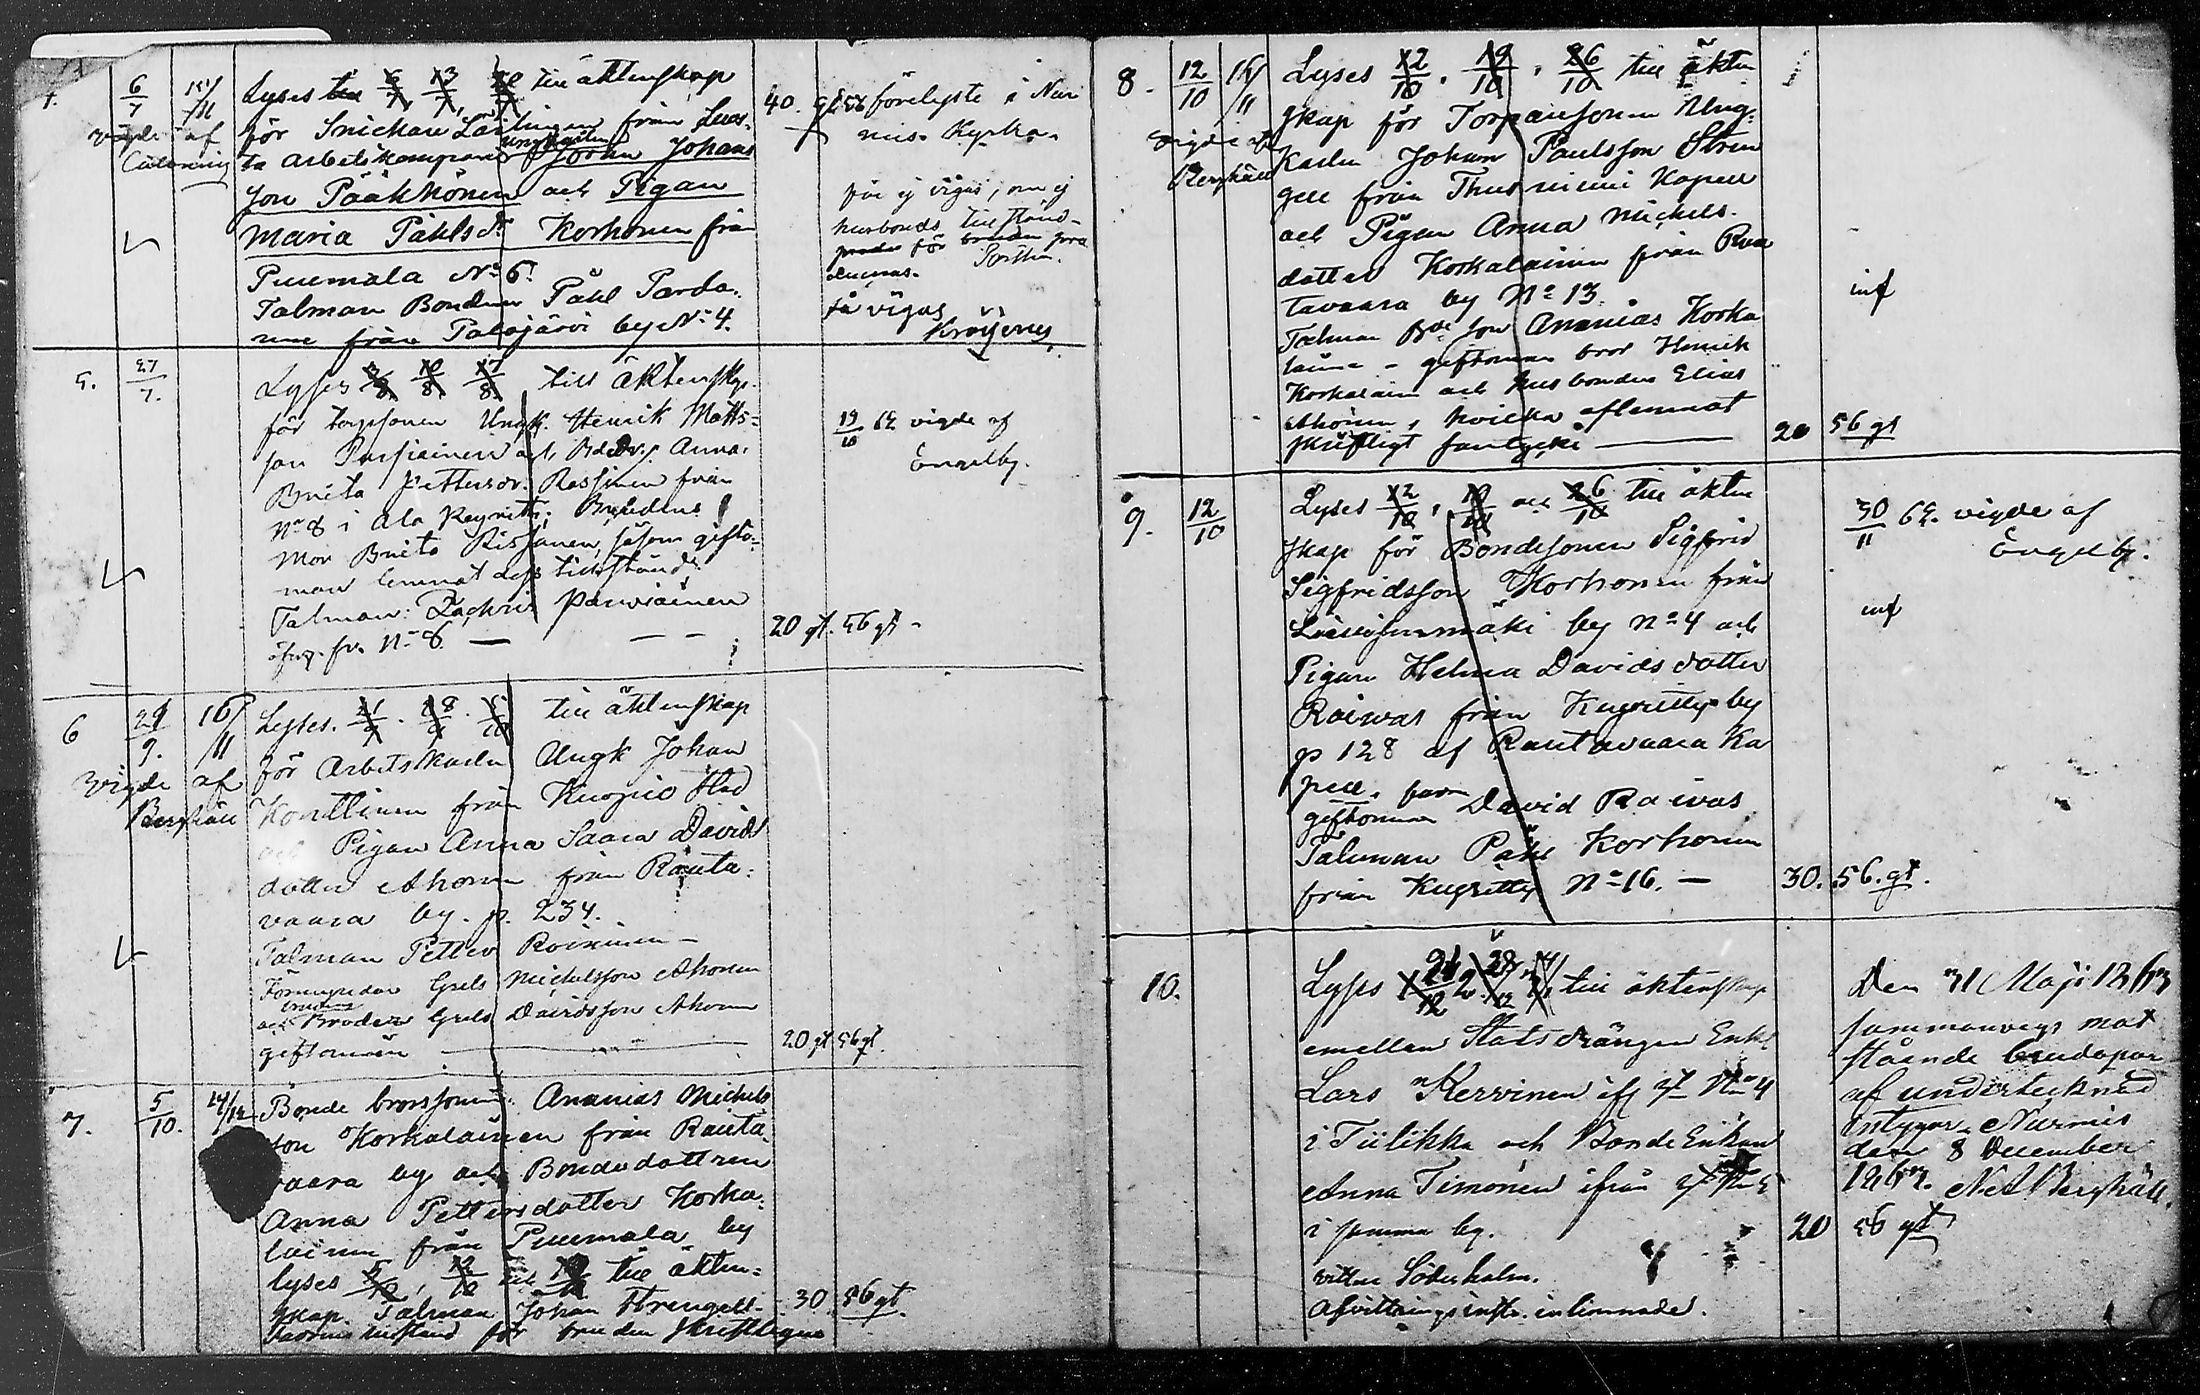 6/7
Lyses 6/7, 13/7, till äktenskap
för Snickare från
ta arbetskompani Johan Johans
son Pääkkönen och Pigan
Maria Påhlsdr Korhonen från
Puumala No 6.
Talman Bonden Påhl Parda-
nen från Palojärvi by No 4.
vigde af
40.
förelyste i Nur
mis Kyrka.
får ej vigas, om ej
husbonds tillstånd
för bruden
få vigas
5. 27/7.
Lyses 3/8 10/8 17/8 till äktenskap
för torpsonen Ungk. Henrik Matts-
son och Anna
Brita Pettersdr. Rissanen från
No 8 i Ala Keyritty; Brudens
Mor Brita Rissanen, såsom gifto-
man lemnat dess tillstånd.
Talman: Zachris Parviainen
fr. No 8. —  — —
20 gt. 56 gt
19/10 62 vigde af
Engelby.
6 29/9. 16/11
vigde af
Berghäll
Lyses. 21/9. 28/9. 5/10 till äktenskap
för Arbetskarlen Ungk Johan
Konttinen från Kuopio Stad
och Pigan Anna Saara Davids
dotter Ahonen från Rauta-
vaara by. p. 234.
Talman Petter Roininen —
Förmyndar Grels Michelsson Ahonen
och brudens Broder Grels Davidsson Ahonen
giftoman —
20 gt 56 gt.
7. 5/10. 14/12
Bonde brorssonen Ananias Michels
son Korkalainen från Rauta-
vaara by och Bondedottren
Anna Pettersdotter Korka-
lainen från Puumala by
lyses 5/10, 12/10 och 19/10 till äkten-
skap. Talman Johan Strengell
för bruden skriftligen
30 56 gt.
8. 12/10 16/11
vigde af
Berghäll
Lyses 12/10. 19/10. 26/10 till äkten
skap för Torparesonen Ung-
karlen Johan Paulsson Stren
gell från Thusniemi Kapell
och Pigan Anna Michels-
dotter Korkalainen från Rau
tavaara by No 13.
Talman Bde son Ananias Korka
lainen – giftoman bror Henrik
Korkalain och husbonden Elias
Ahonen, hvilka aflemnat
skriftligt samtycke —
20 56 gt
inf
9. 12/10
Lyses 12/10, 19/10 och 26/10 till äkten
skap för Bondesonen Sigfrid
Sigfridsson Korhonen från
mäki by No 4 och
Pigan Helena Davidsdotter
Raivas från Keyritty by
p 128 af Rautavaara Ka
pell. farn
giftoman David Raivas
Talman Påhl Korhonen
från Keyritty No 16. —
30. 56. gt.
30/11 62. vigde af
Engelby.
inf
10.
Lyses 1 21/12 2 28/12 till äktenskap
emellan Statsdrängen Enkl
Lars Kervinen ifr No 4
i Tiilikka och Bonde Enkan
Anna Timonen ifrån No 5
i samma by.
vittne Söderholm.
Afvittringsinstr. inlemnade.
20 56 gt
Den 31 Maji 1863
sammanvigs mot
stående brudepar
af undertecknad
intygar. Nurmis
den 8 December
1863. Berghäll